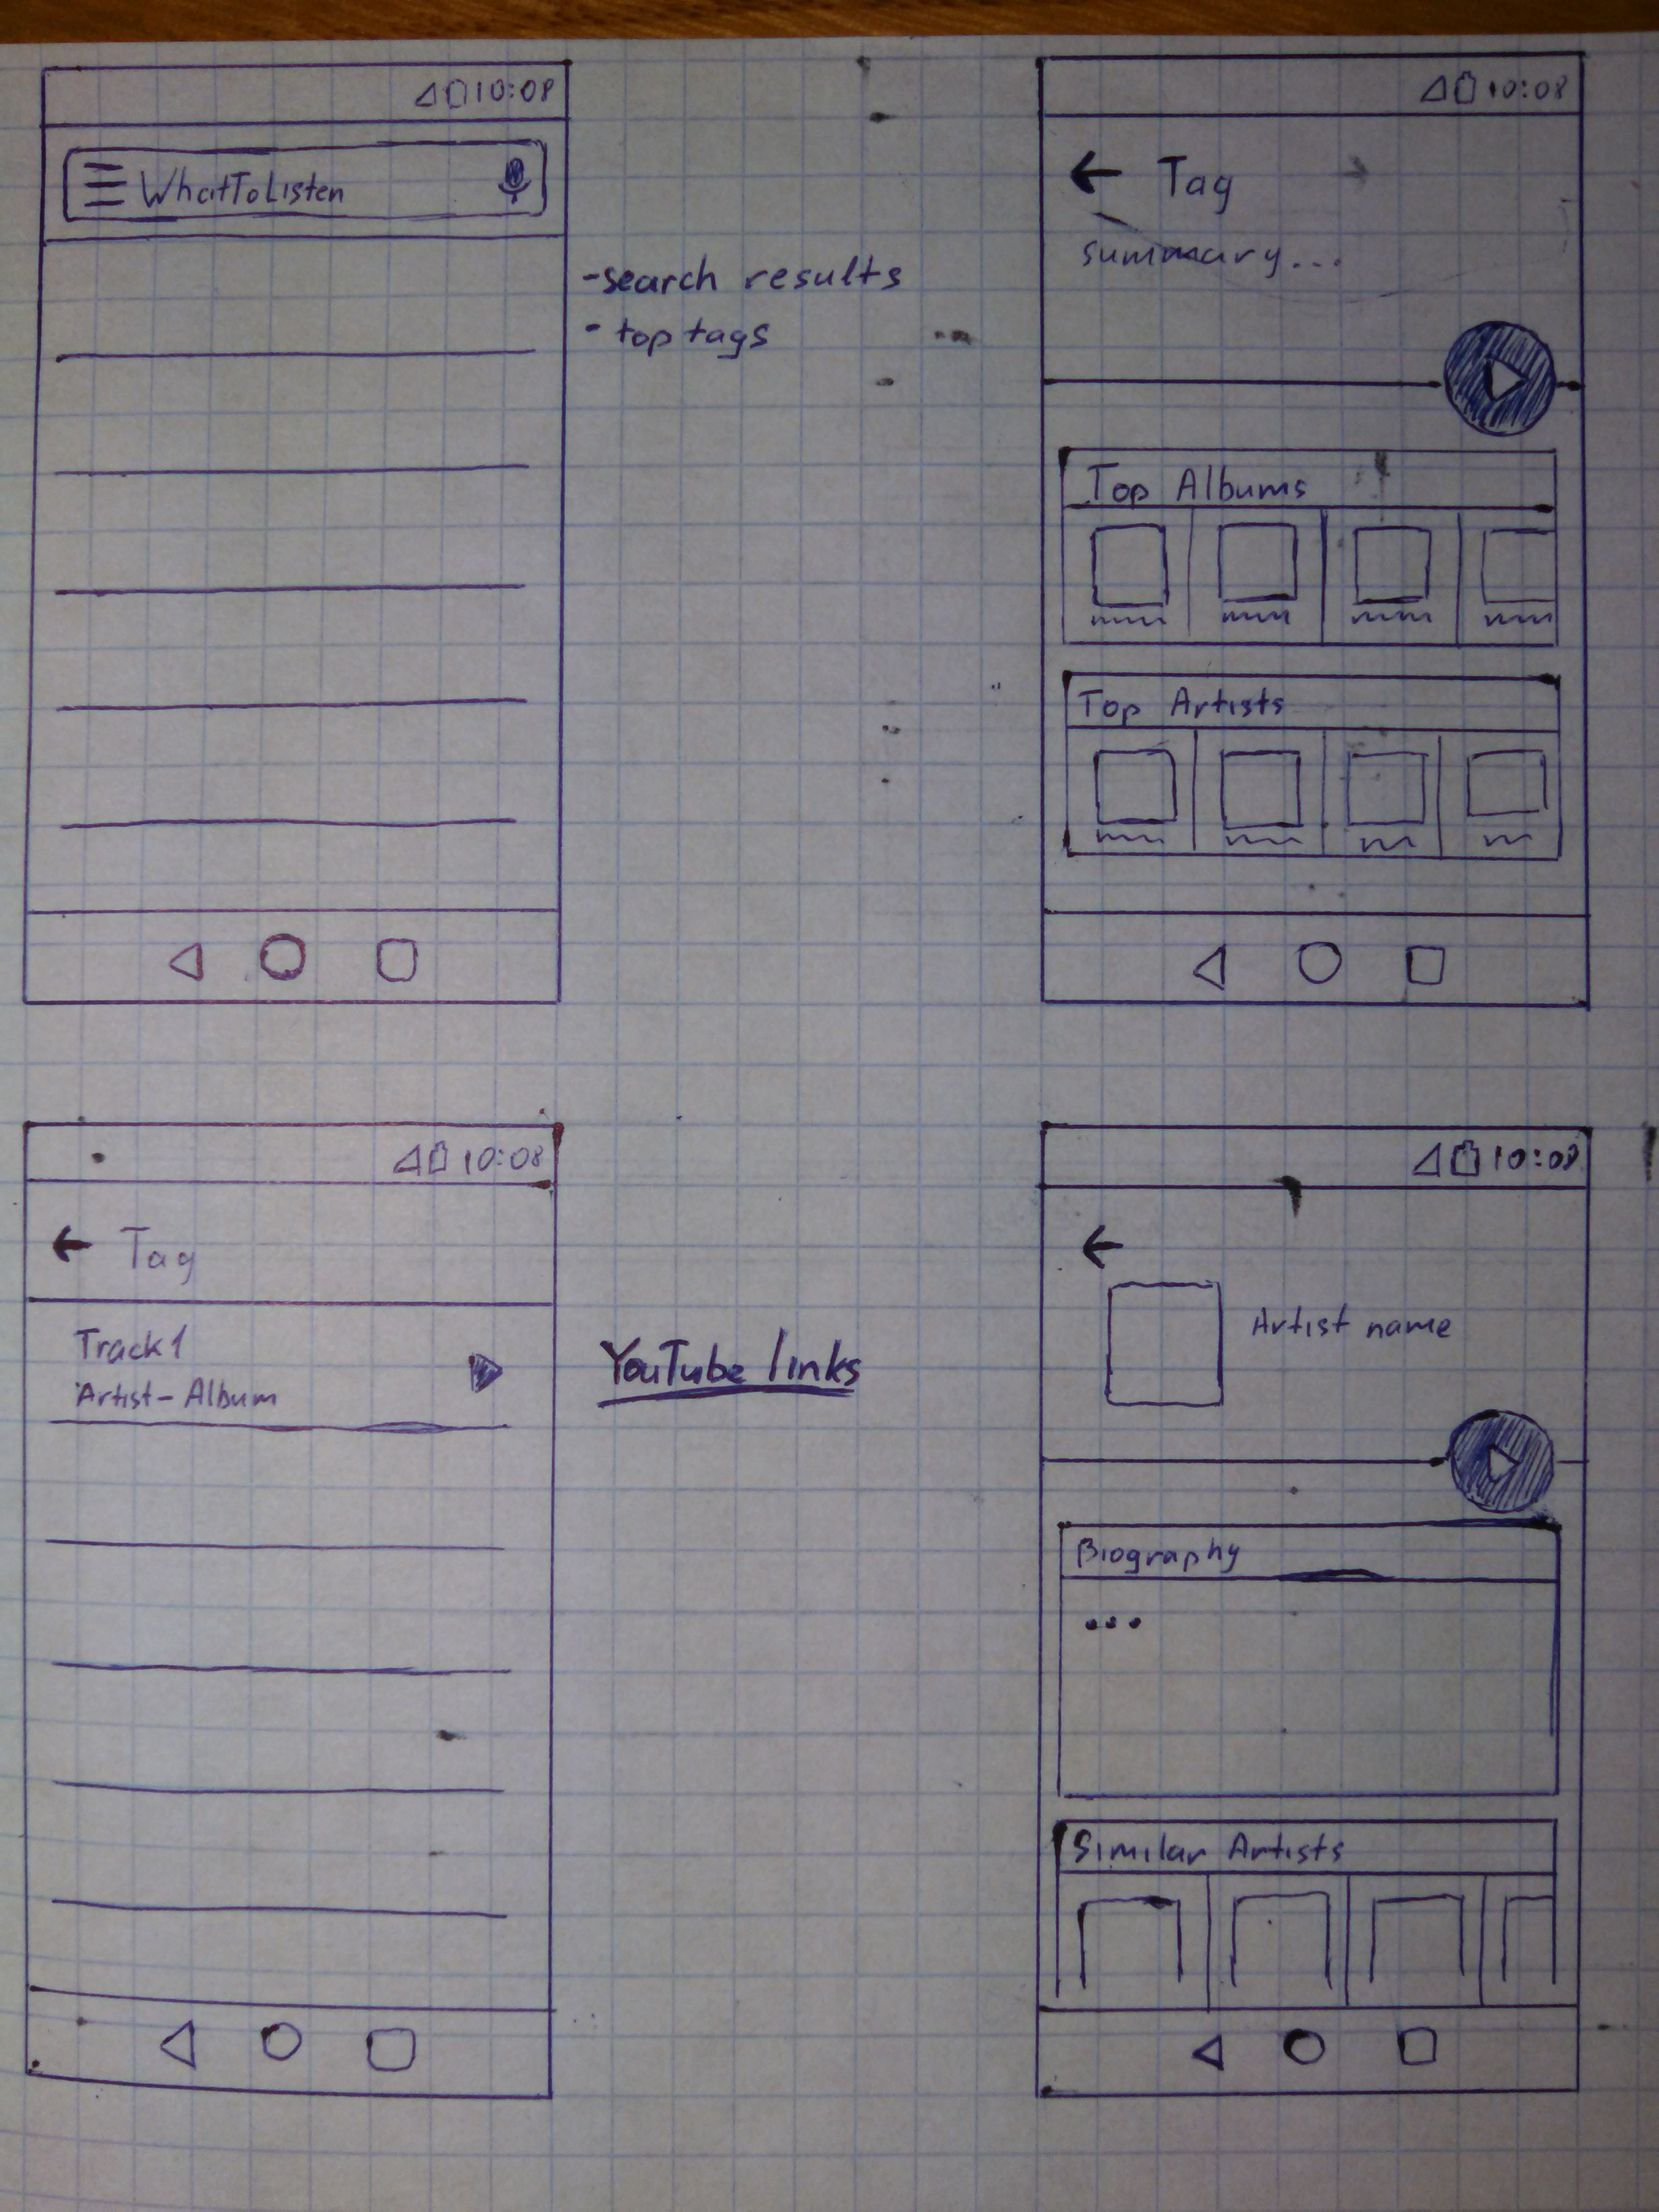 10:08
WhatToListen
-search results
- top tags
10:08
Tag
summary...
Top Albums
Top Artists
10:08
Tag
Track1
Artist-Album
YouTube links
10:08
Artist name
Biography
...
Similar Artists